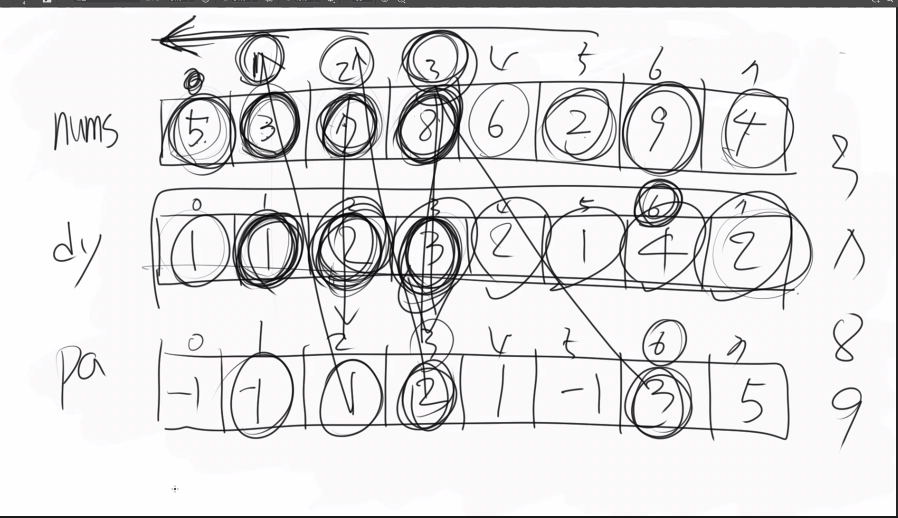 0 1 2 3 4 5 6 7
nums 5 3 7 8 6 2 9 4
3
0 1 2 3 4 5 6 7
dy 1 1 2 3 2 1 4 2
7
0 1 2 3 4 5 6 7
8
pa -1 -1 1 2 1 -1 3 5
9